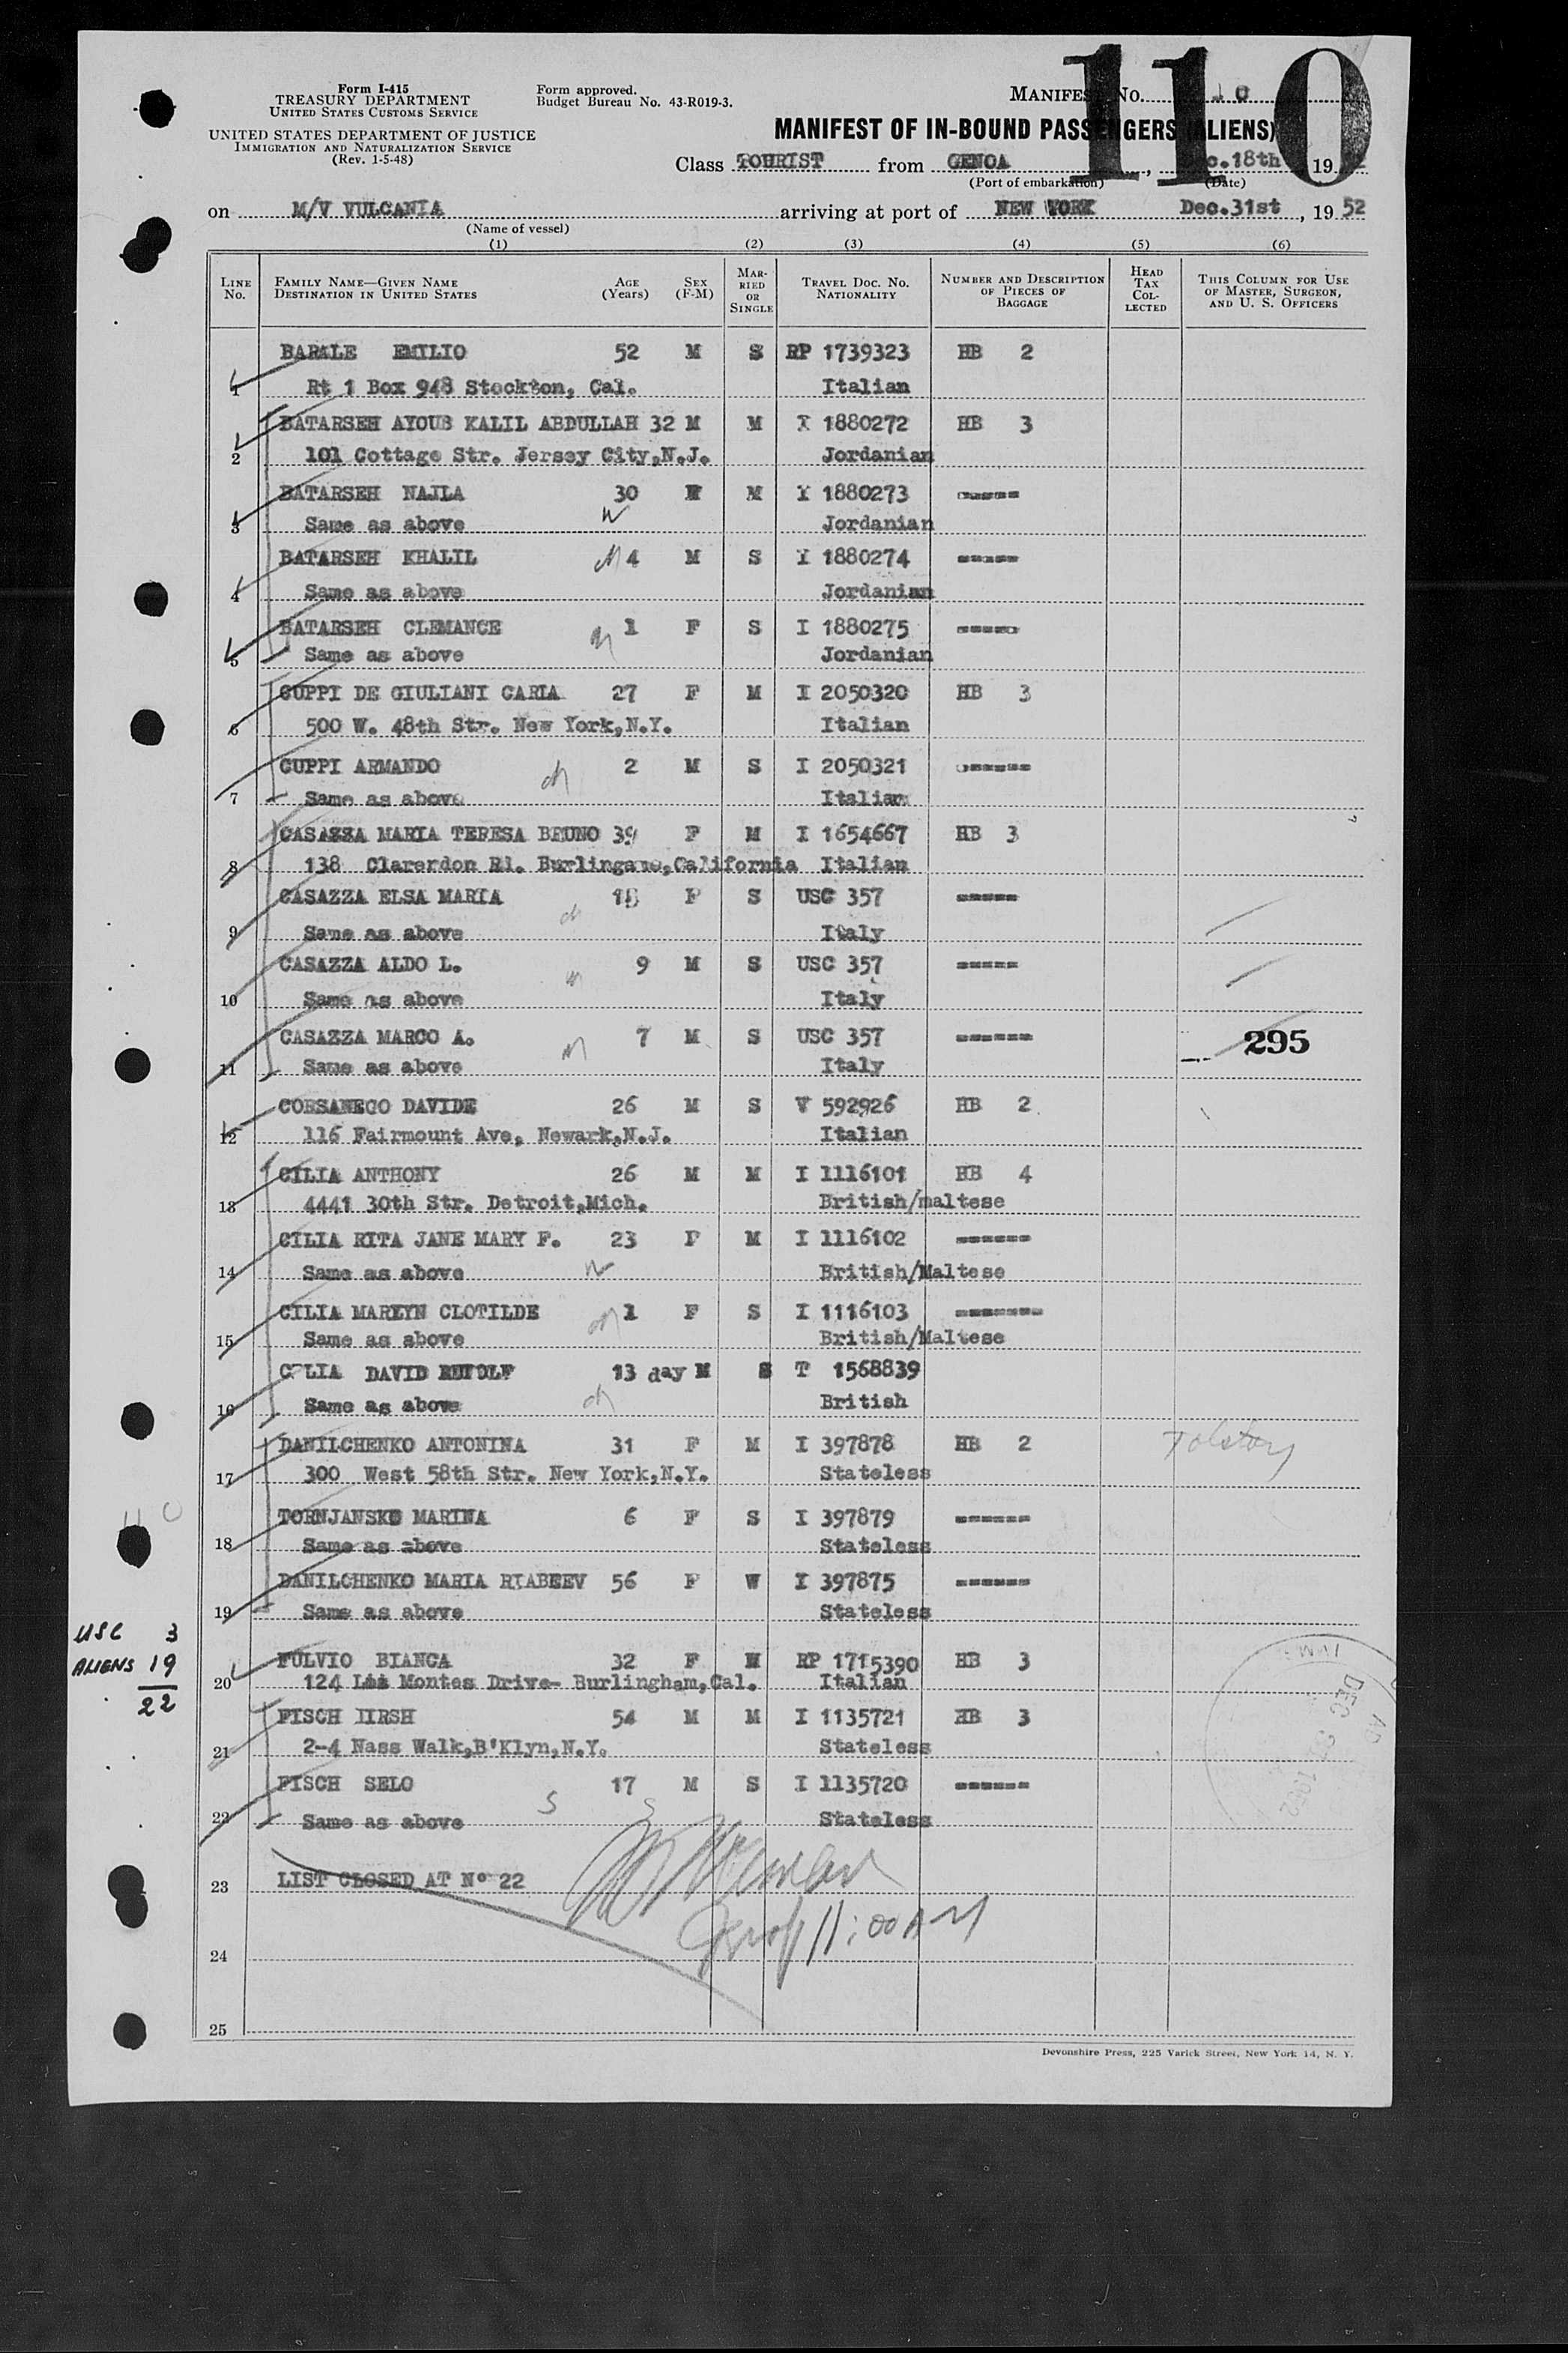 Form I-415
TREASURY DEPARTMENT
UNITED STATES CUSTOMS SERVICE
UNITED STATES DEPARTMENT OF JUSTICE
IMMIGRATION AND NATURALIZATION SERVICE
(Rev. 1-5-48)
Form approved.
Budget Bureau No. 43-R019-3.
110
MANIFEST No.
MANIFEST OF IN-BOUND PASSENGERS (ALIENS)
Class TOURIST from GENOA, Dec.18th 19
(Port of embarkation) (Date)
on M/V VULCANIA arriving at port of NEW YORK Dec.31st, 1952
(Name of vessel)
(1) (2) (3) (4) (5) (6)
LINE No. FAMILY NAME—GIVEN NAME DESTINATION IN UNITED STATES AGE (Years) SEX (F-M) MARRIED OR SINGLE TRAVEL DOC. No. NATIONALITY NUMBER AND DESCRIPTION OF PIECES OF BAGGAGE HEAD TAX COLLECTED THIS COLUMN FOR USE OF MASTER, SURGEON, AND U. S. OFFICERS
BARALE EMILIO 52 M S RP 1739323 HB 2
1 Rt 1 Box 948 Stockton, Cal. Italian
BATARSEH AYOUB KALIL ABDULLAH 32 M M I 1880272 HB 3
2 101 Cottage Str. Jersey City,N.J. Jordanian
BATARSEH NAJLA 30 F M I 1880273 -----
3 Same as above Jordanian
BATARSEH KHALIL 4 M S I 1880274 -----
4 Same as above Jordanian
BATARSEH CLEMANCE 1 F S I 1880275 -----
5 Same as above Jordanian
CUPPI DE GIULIANI CARLA 27 F M I 2050320 HB 3
6 500 W. 48th Str. New York,N.Y. Italian
CUPPI ARMANDO 2 M S I 2050321 ------
7 Same as above Italian
CASAZZA MARIA TERESA BRUNO 39 F M I 1654667 HB 3
8 138 Clarerdon Rd. Burlingame,California Italian
CASAZZA ELSA MARIA F S USC 357 -----
9 Same as above Italy
CASAZZA ALDO L. 9 M S USC 357 -----
10 Same as above Italy
CASAZZA MARCO A. 7 M S USC 357 ------ 295
11 Same as above Italy
CORSANEGO DAVIDE 26 M S V 592926 HB 2
12 116 Fairmount Ave, Newark,N.J. Italian
CILIA ANTHONY 26 M M I 1116101 HB 4
13 4441 30th Str. Detroit,Mich. British/maltese
CILIA RITA JANE MARY F. 23 F M I 1116102 ------
14 Same as above British/Maltese
CILIA MARLYN CLOTILDE 1 F S I 1116103 -------
15 Same as above British/Maltese
CILIA DAVID 13 day M S T 1568839
16 Same as above British
DANILCHENKO ANTONINA 31 F M I 397878 HB 2 Tolstoy
17 300 West 58th Str. New York,N.Y. Stateless
TORNJANSKO MARINA 6 F S I 397879 ------
18 Same as above Stateless
DANILCHENKO MARIA RIABEEV 56 F W I 397875 ------
19 Same as above Stateless
USC 3
ALIENS 19
22
FULVIO BIANCA 32 F M RP 1715390 HB 3
20 124 Montes Drive- Burlingham,Cal. Italian
FISCH HIRSH 54 M M I 1135721 HB 3
21 2-4 Nass Walk,B'Klyn,N.Y. Stateless
FISCH SELO 17 M S I 1135720 ------
22 Same as above Stateless
23 LIST CLOSED AT N° 22
11:00 AM
24
25
Devonshire Press, 225 Varick Street, New York 14, N. Y.